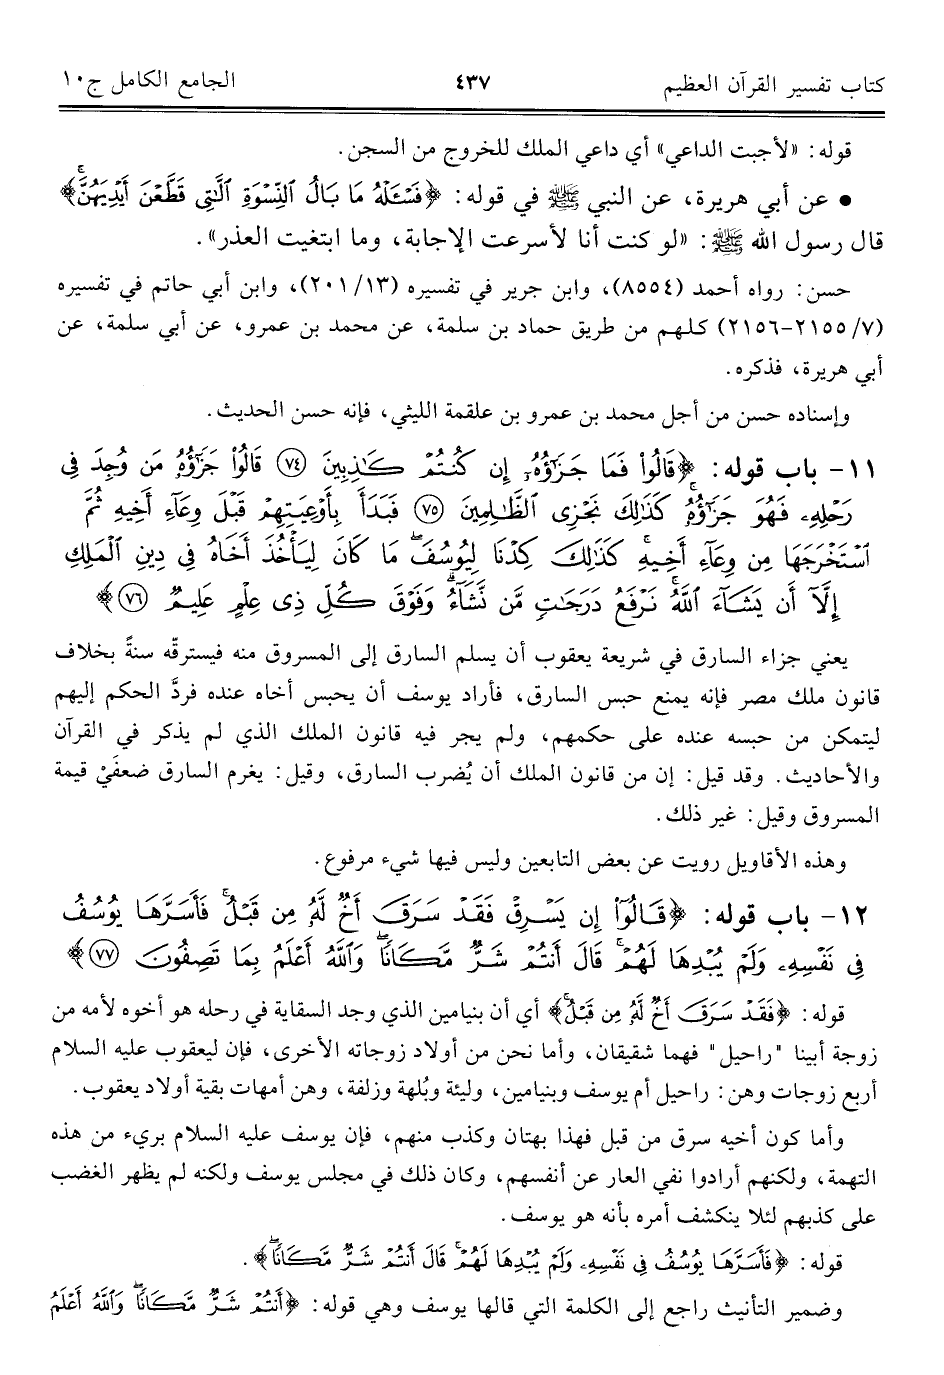 كتاب تفسير القرآن العظيم ٤٣٧ الجامع الكامل ج١٠
قوله: «لأجبت الداعي» أي داعي الملك للخروج من السجن.
• عن أبي هريرة، عن النبي ﷺ في قوله: ﴿فَسْـَٔلْهُ مَا بَالُ ٱلنِّسْوَةِ ٱلَّٰتِى قَطَّعْنَ أَيْدِيَهُنَّ﴾
قال رسول الله ﷺ: «لو كنت أنا لأسرعت الإجابة، وما ابتغيت العذر».
حسن: رواه أحمد (٨٥٥٤)، وابن جرير في تفسيره (٢٠١/١٣)، وابن أبي حاتم في تفسيره
(٧/ ٢١٥٥-٢١٥٦) كلهم من طريق حماد بن سلمة، عن محمد بن عمرو، عن أبي سلمة، عن
أبي هريرة، فذكره.
وإسناده حسن من أجل محمد بن عمرو بن علقمة الليثي، فإنه حسن الحديث.
١١- باب قوله: ﴿قَالُوا۟ فَمَا جَزَٰٓؤُهُۥٓ إِن كُنتُمْ كَٰذِبِينَ ٧٤ قَالُوا۟ جَزَٰٓؤُهُۥ مَن وُجِدَ فِى
رَحْلِهِۦ فَهُوَ جَزَٰٓؤُهُۥ ۚ كَذَٰلِكَ نَجْزِى ٱلظَّٰلِمِينَ ٧٥ فَبَدَأَ بِأَوْعِيَتِهِمْ قَبْلَ وِعَآءِ أَخِيهِ ثُمَّ
ٱسْتَخْرَجَهَا مِن وِعَآءِ أَخِيهِ ۚ كَذَٰلِكَ كِدْنَا لِيُوسُفَ ۖ مَا كَانَ لِيَأْخُذَ أَخَاهُ فِى دِينِ ٱلْمَلِكِ
إِلَّآ أَن يَشَآءَ ٱللَّهُ ۚ نَرْفَعُ دَرَجَٰتٍ مَّن نَّشَآءُ ۗ وَفَوْقَ كُلِّ ذِى عِلْمٍ عَلِيمٌ ٧٦﴾
يعني جزاء السارق في شريعة يعقوب أن يسلم السارق إلى المسروق منه فيسترقّه سنةً بخلاف
قانون ملك مصر فإنه يمنع حبس السارق، فأراد يوسف أن يحبس أخاه عنده فردَّ الحكم إليهم
ليتمكن من حبسه عنده على حكمهم، ولم يجر فيه قانون الملك الذي لم يذكر في القرآن
والأحاديث. وقد قيل: إن من قانون الملك أن يُضرب السارق، وقيل: يغرم السارق ضعفَيْ قيمة
المسروق وقيل: غير ذلك.
وهذه الأقاويل رويت عن بعض التابعين وليس فيها شيء مرفوع.
١٢- باب قوله: ﴿قَالُوٓا۟ إِن يَسْرِقْ فَقَدْ سَرَقَ أَخٌ لَّهُۥ مِن قَبْلُ ۚ فَأَسَرَّهَا يُوسُفُ
فِى نَفْسِهِۦ وَلَمْ يُبْدِهَا لَهُمْ ۚ قَالَ أَنتُمْ شَرٌّ مَّكَانًا ۖ وَٱللَّهُ أَعْلَمُ بِمَا تَصِفُونَ ٧٧﴾
قوله: ﴿فَقَدْ سَرَقَ أَخٌ لَّهُۥ مِن قَبْلُ ۚ﴾ أي أن بنيامين الذي وجد السقاية في رحله هو أخوه لأمه من
زوجة أبينا "راحيل" فهما شقيقان، وأما نحن من أولاد زوجاته الأخرى، فإن ليعقوب عليه السلام
أربع زوجات وهن: راحيل أم يوسف وبنيامين، وليئة وبُلهة وزلفة، وهن أمهات بقية أولاد يعقوب.
وأما كون أخيه سرق من قبل فهذا بهتان وكذب منهم، فإن يوسف عليه السلام بريء من هذه
التهمة، ولكنهم أرادوا نفي العار عن أنفسهم، وكان ذلك في مجلس يوسف ولكنه لم يظهر الغضب
على كذبهم لئلا ينكشف أمره بأنه هو يوسف.
قوله: ﴿فَأَسَرَّهَا يُوسُفُ فِى نَفْسِهِۦ وَلَمْ يُبْدِهَا لَهُمْ ۚ قَالَ أَنتُمْ شَرٌّ مَّكَانًا ۖ﴾.
وضمير التأنيث راجع إلى الكلمة التي قالها يوسف وهي قوله: ﴿أَنتُمْ شَرٌّ مَّكَانًا ۖ وَٱللَّهُ أَعْلَمُ